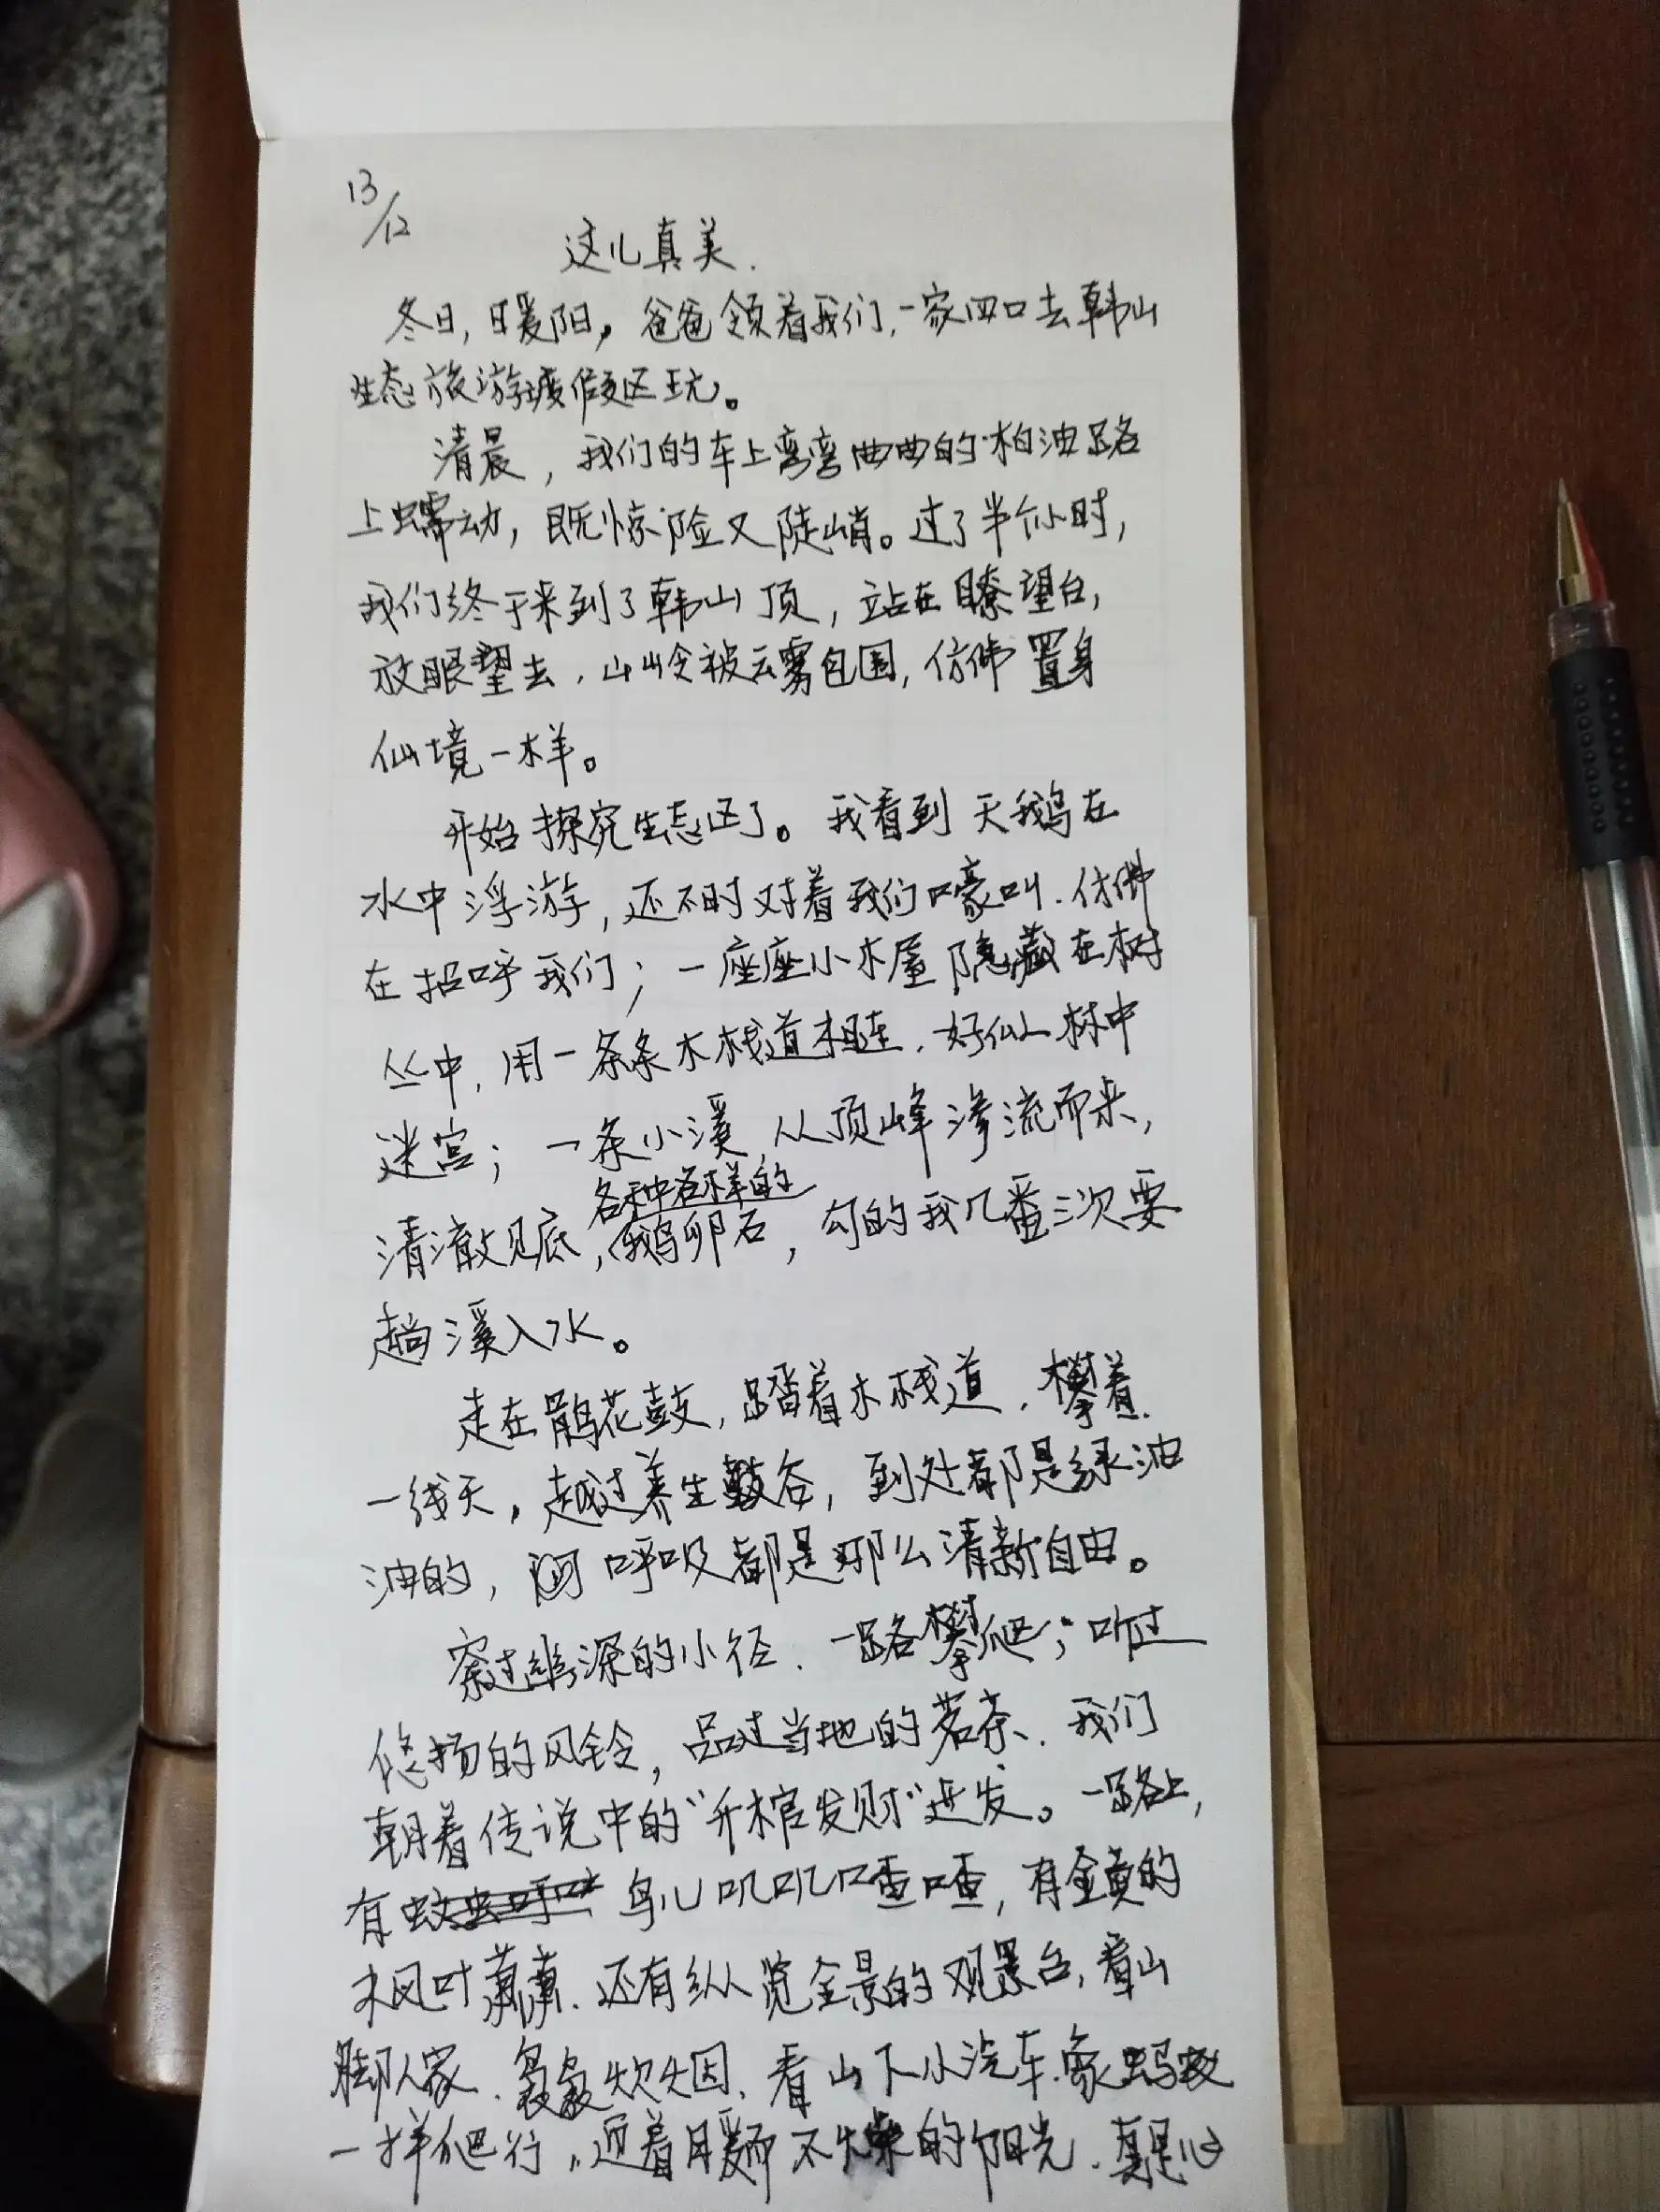 13/12
这儿真美.
冬日,暖阳,爸爸领着我们,一家四口去韩山
生态旅游度假区玩。
清晨,我们的车上弯弯曲曲的柏油路
上蠕动,既惊险又陡峭。过了半个小时,
我们终于来到了韩山顶,站在瞭望台,
放眼望去,山岭被云雾包围,仿佛置身
仙境一样。
开始探究生态区了。我看到天鹅在
水中浮游,还不时对着我们嚎叫.仿佛
在招呼我们;一座座小木屋隐藏在树
丛中,用一条条木栈道相连.好似林中
迷宫;一条小溪,从顶峰渗流而来,
各种各样的
清澈见底,鹅卵石,勾的我几番三次要
趟溪入水。
走在鹃花鼓,踏着木栈道,攀着
一线天,越过养生谷,到处都是绿油
油的,呼吸都是那么清新自由。
穿过幽深的小径.一路攀爬;听过
悠扬的风铃,品过当地的茗茶.我们
朝着传说中的“升棺发财”进发。一路上,
有鸟儿叽叽喳喳,有金黄的
枫叶萧萧.还有纵览全景的观景台,看山
脚人家.袅袅炊烟.看山下小汽车.象蚂蚁
一样爬行,迎着暖而不燥的阳光.真是心